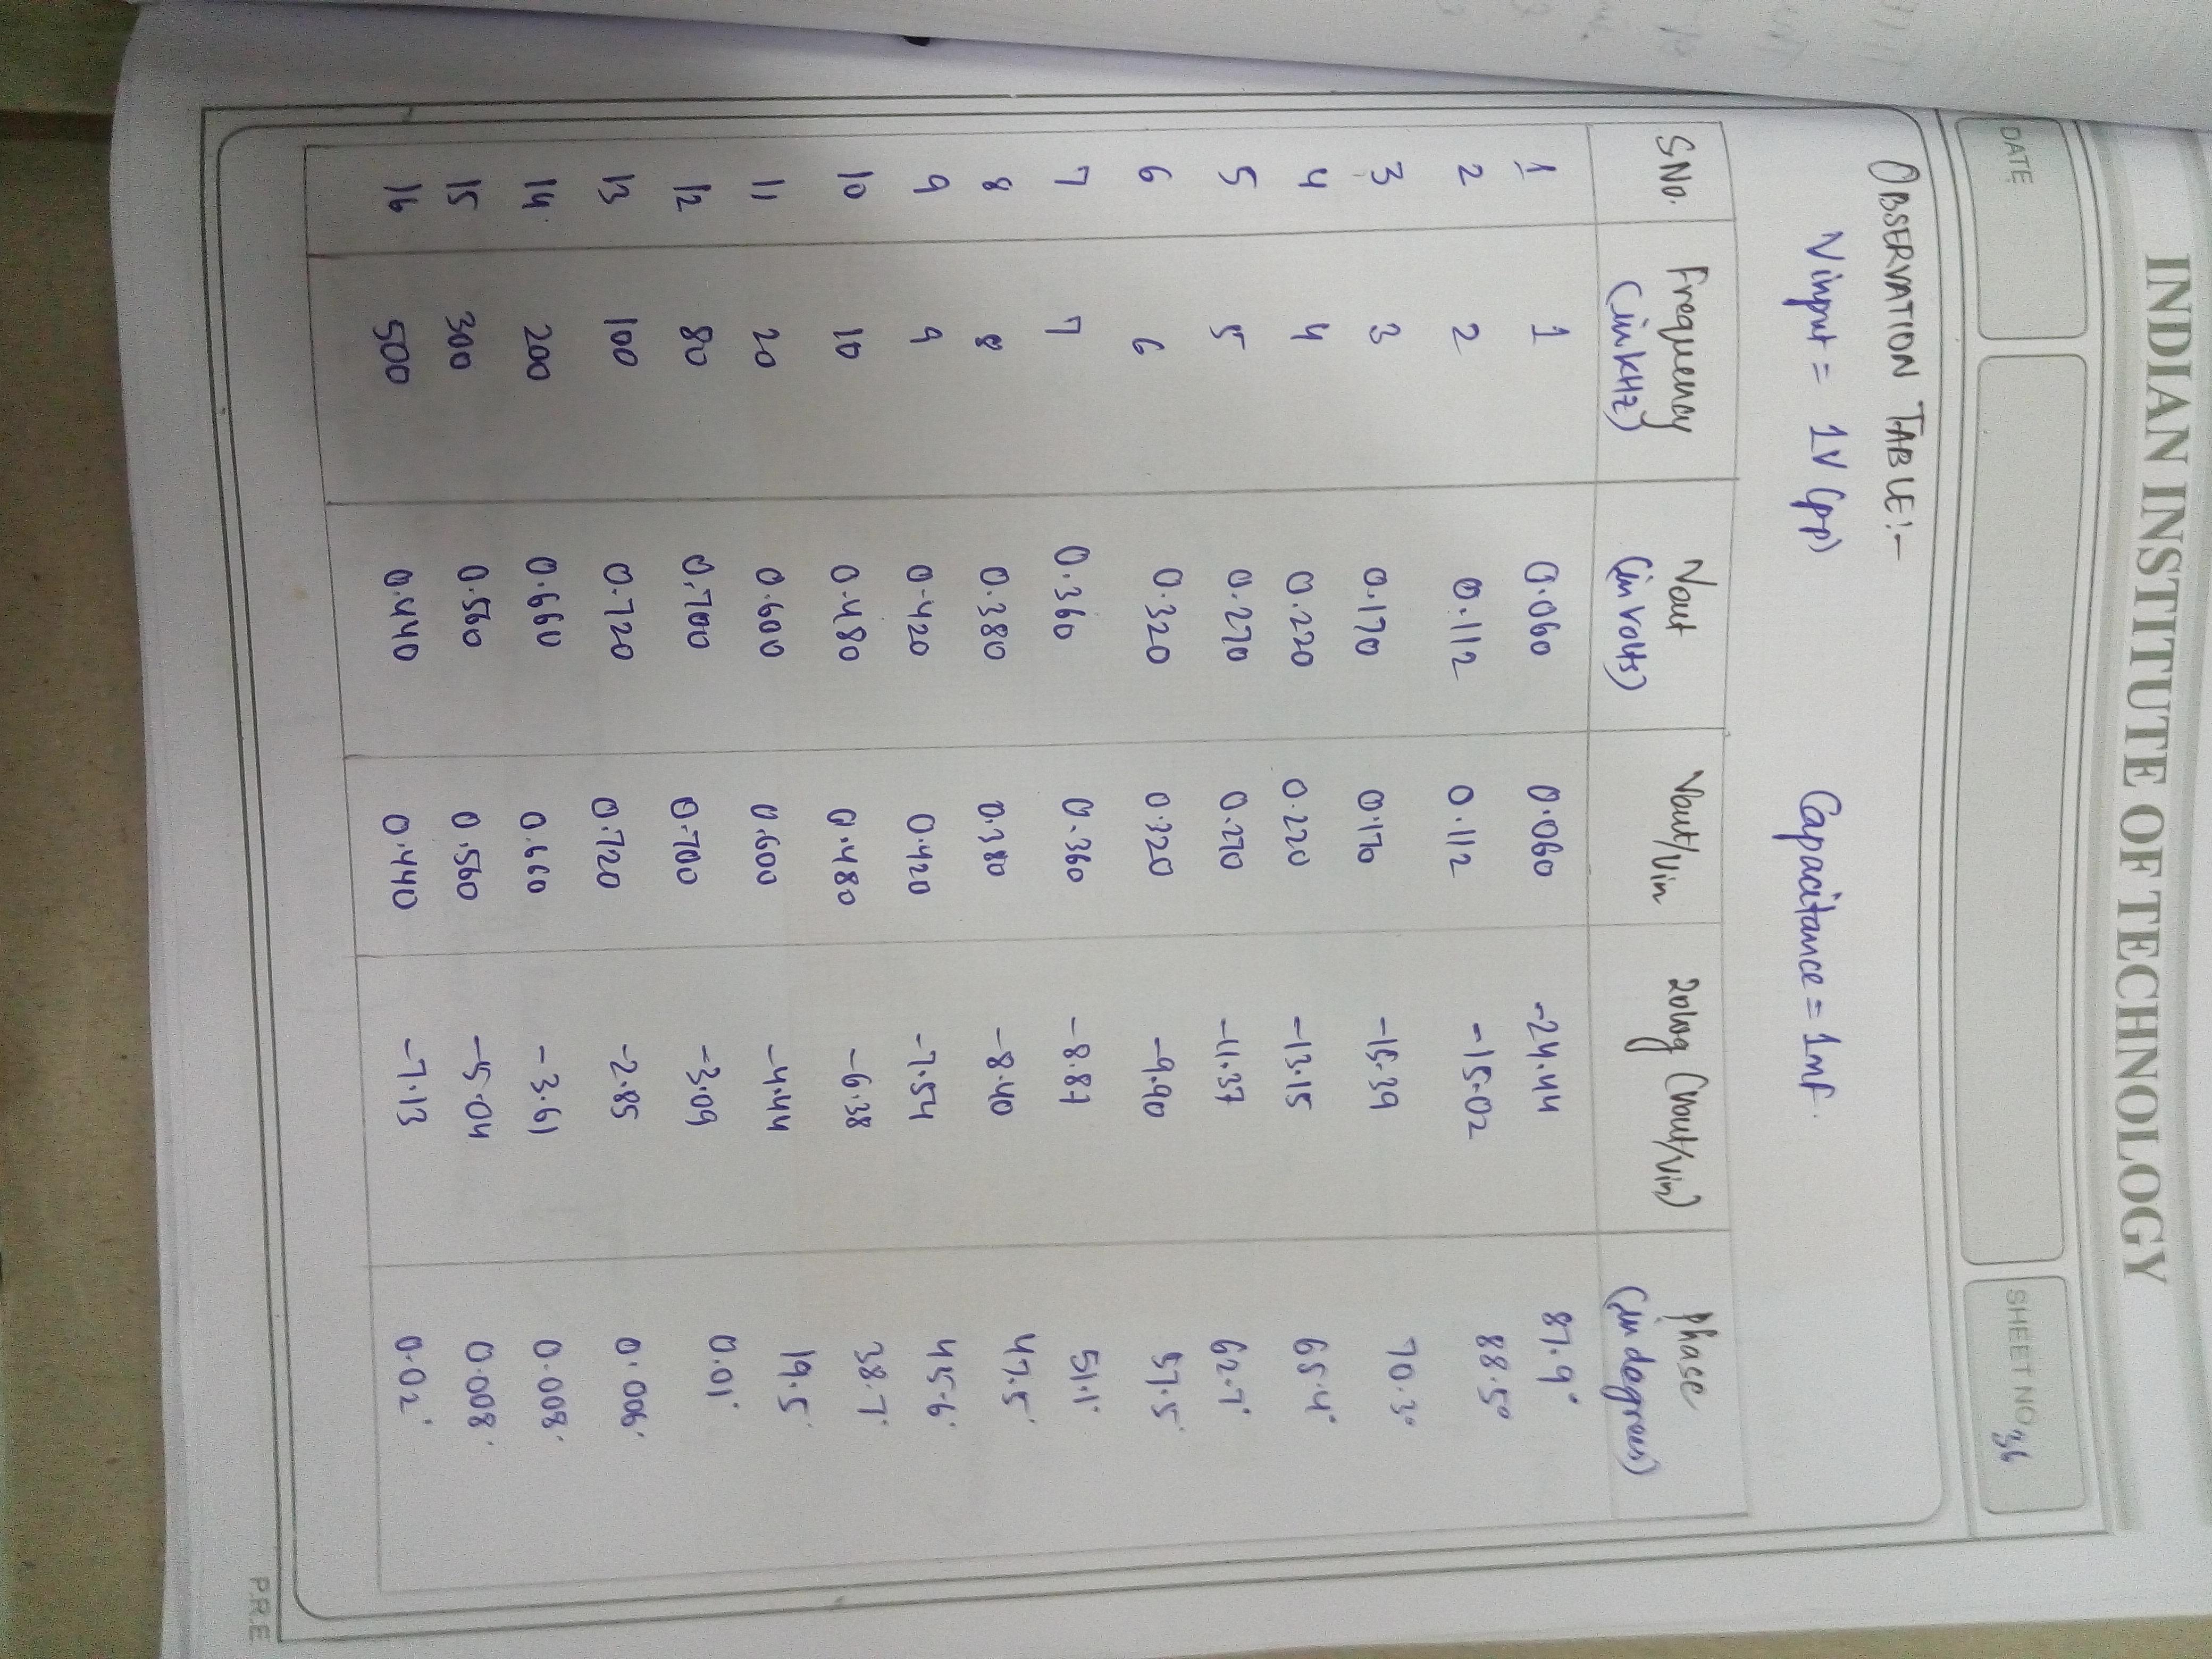 INDIAN INSTITUTE OF TECHNOLOGY
DATE
SHEET NO. 36
OBSERVATION TABLE:-
Vinput = 1V (p-p) Capacitance = 1nf.
SNo. Frequency (in kHz) Vout (in volts) Vout/Vin 20log (Vout/Vin) Phase (in degrees)
1 1 0.060 0.060 -24.44 87.9°
2 2 0.112 0.112 -15.02 88.5°
3 3 0.170 0.170 -15.39 70.3°
4 4 0.220 0.220 -13.15 65.4°
5 5 0.270 0.270 -11.37 62.7°
6 6 0.320 0.320 -9.90 57.5°
7 7 0.360 0.360 -8.87 51.1°
8 8 0.380 0.380 -8.40 47.5°
9 9 0.420 0.420 -7.54 45.6°
10 10 0.480 0.480 -6.38 38.7°
11 20 0.600 0.600 -4.44 19.5°
12 80 0.700 0.700 -3.09 0.01°
13 100 0.720 0.720 -2.85 0.006°
14 200 0.660 0.660 -3.61 0.008°
15 300 0.560 0.560 -5.04 0.008°
16 500 0.440 0.440 -7.13 0.02°
P.R.E